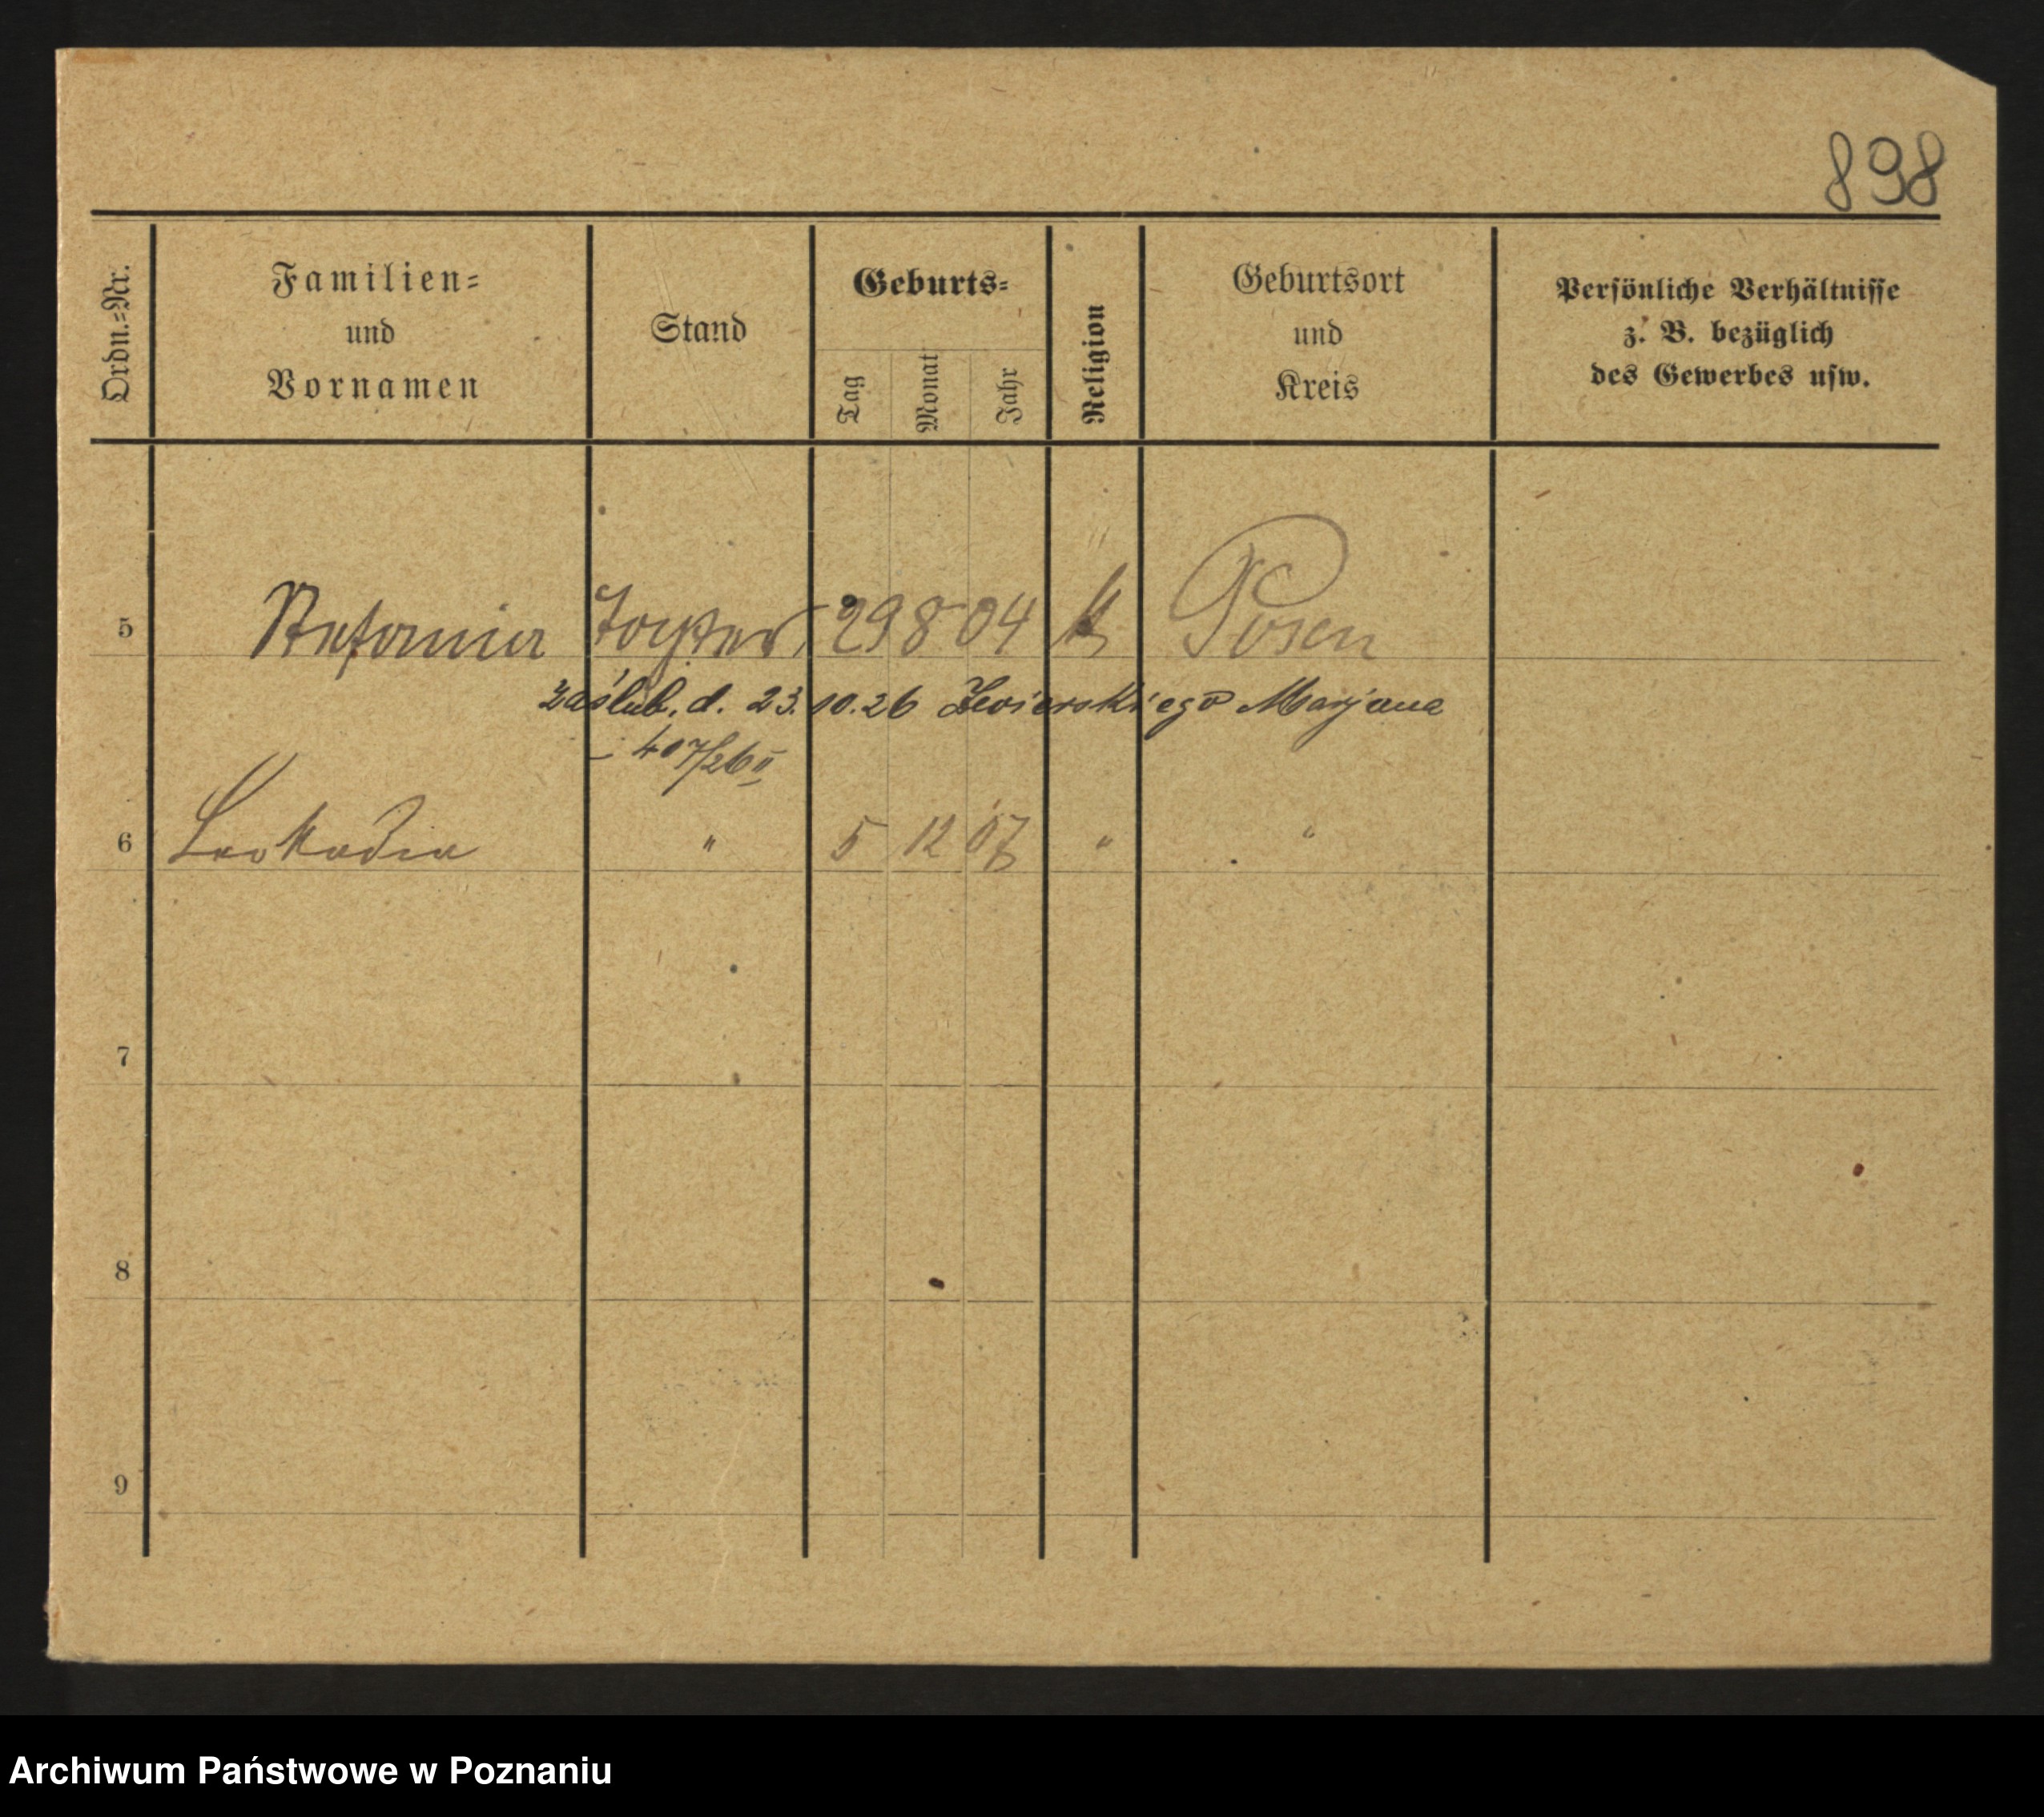 898
Ordn.=Nr.
Familien=
und
Vornamen
Stand
Geburts=
Tag
Monat
Jahr
Religion
Geburtsort
und
Kreis
Persönliche Verhältnisse
z. B. bezüglich
des Gewerbes usw.
5 Stefania Tochter 29 8 04 k Posen
zaślub. d. 23.10.26 Marjana
- 407/26 II
6 Leokadia " 5 12 07 " "
7
8
9
Archiwum Państwowe w Poznaniu